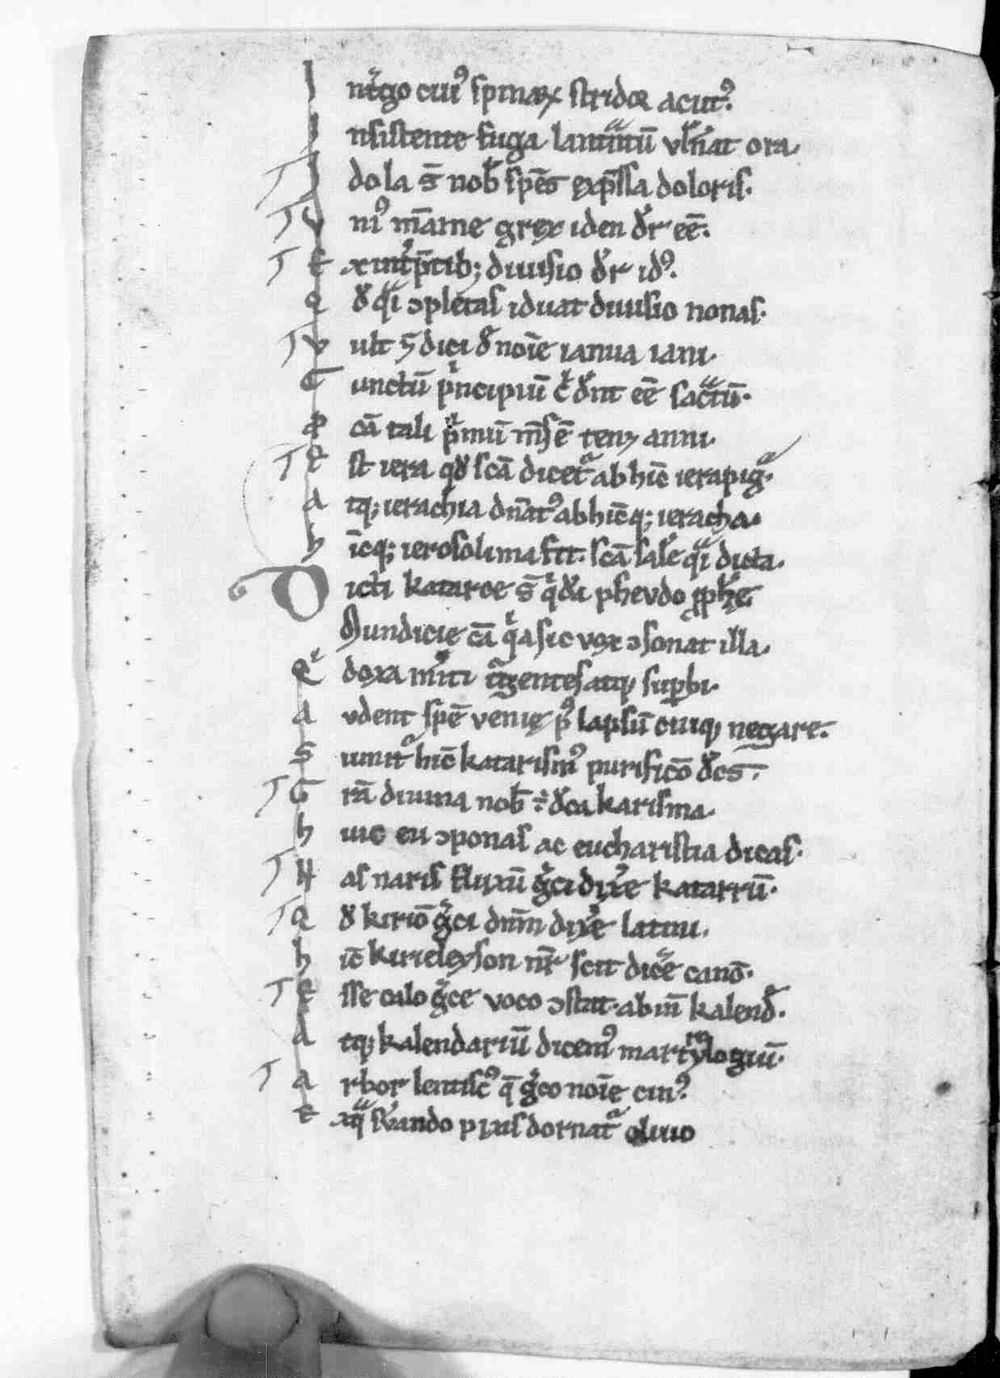 I nt̾go cuiꝰ spinaꝝ stridor acutꝰ.
I nsistente fuga lantītū uln̄at ora.
I dola s̄ nob̄ spēs exp̄ssa doloris.
V niꝰ m̄ame grex iden dr̄ eē.
E x int̾p̄tib; diuisio dr̄ idꝰ.
Q d̾ qͣi ꝯpletas iduat diuisio nonas.
V ult dici d̾ noīe ianua iani.
C unctū pͥncipiū dn̄t eē sac̄tū.
P cā tali pͥmū m̄sē tenꝫ anni.
E st iera qd̾ scā dicetᷓ ab hīc ierapigᷓ.
A tq; ierachia dn̄atᷓ ab hīcq; ieracha.
h īcq; ierosolima fit. scā sal̾e qͣi dicta.
D icti kataroe s̄ qͥdā pseudo ꝓph̄e
Mundicie cā qͥa sic uox ꝯsonat illa.
Q doxa m̾iti tᷓgentes atqꝫ suꝑbi.
A udent spē uenię pꝰ lapsū cuiqꝫ negare.
S umitᷓ hīc katarismꝰ purificō dc̄s.
G rā diuina nob̄ ÷ dc̄a karisma.
h uic eu ꝯponas ac eucharistia dicas.
H as naris fluxū gͣci dix̾e katarrū.
Q d̾ kiriō gͣci dnm̄ dix̾e latini.
h īc kirieleyson nr̄ scit dic̾e canō.
E sse calo gͣce uoco ꝯstat. ab in̄ kalend̾.
A tq; kalendariū dicemꝰ martyrologiū.
A rbor lentiscꝰ q̄ gͣco noīe cinꝰ.
E x qͣ s̾uando pius dornatᷓ oliuo